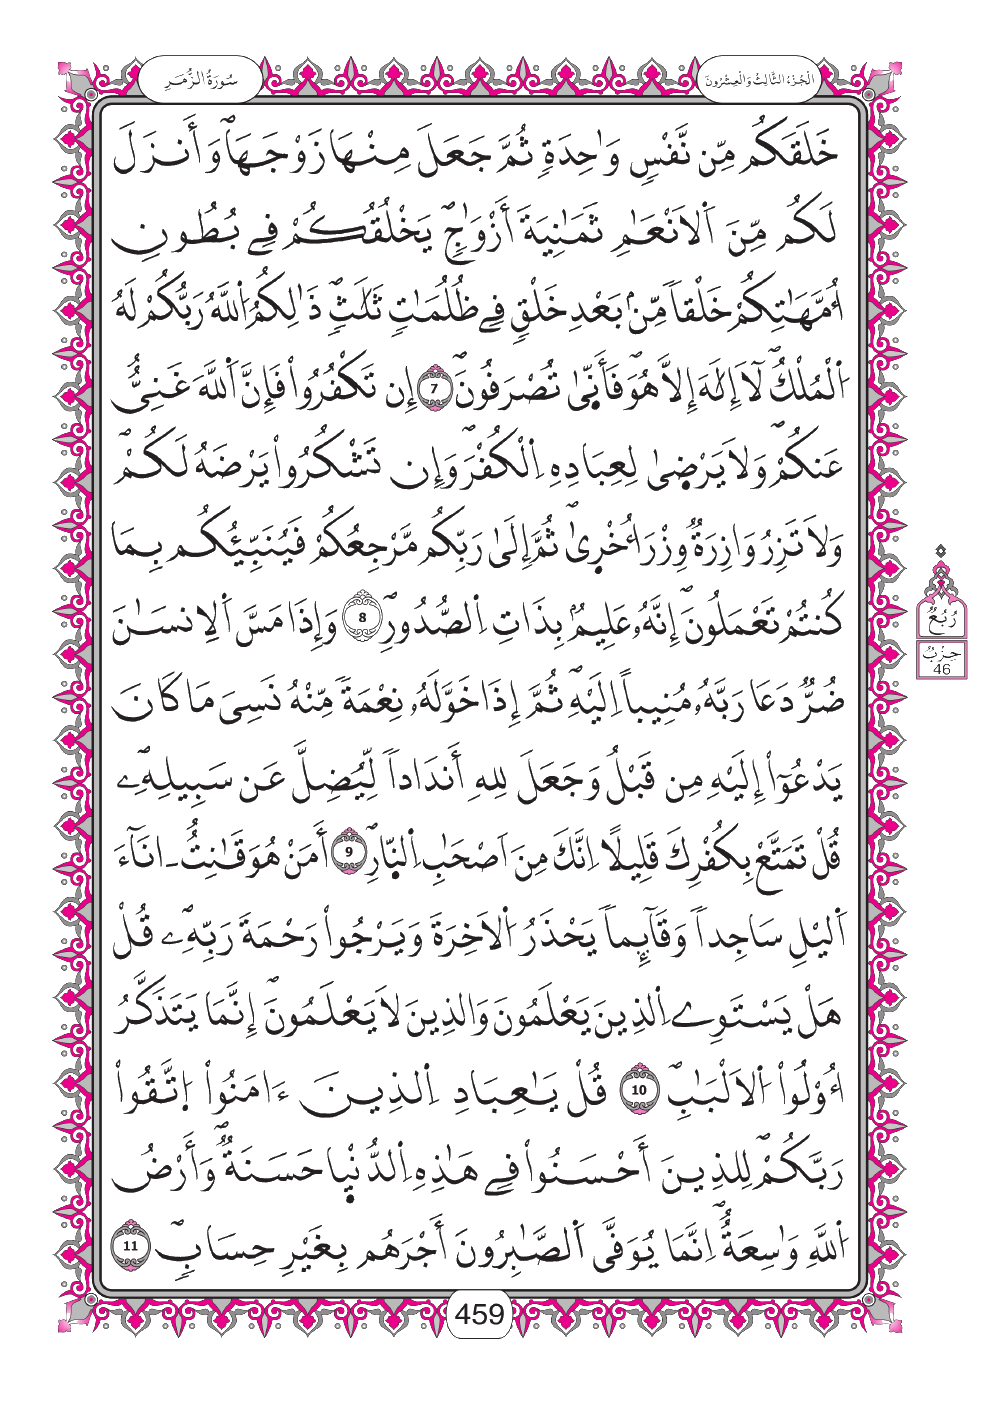 سُورَةُ الزُّمَرِ
الْجُزْءُ الثَّالِثُ وَالْعِشْرُونَ
خَلَقَكُم مِّن نَّفْسٖ وَٰحِدَةٖ ثُمَّ جَعَلَ مِنْهَا زَوْجَهَاۖ وَأَنزَلَ
لَكُم مِّنَ اَ۬لَانْعَٰمِ ثَمَٰنِيَةَ أَزْوَٰجٖۖ يَخْلُقُكُمْ فِے بُطُونِ
أُمَّهَٰتِكُمْ خَلْقاٗ مِّنۢ بَعْدِ خَلْقٖ فِے ظُلُمَٰتٖ ثَلَٰثٖۖ ذَٰلِكُمُ اُ۬للَّهُ رَبُّكُمْ لَهُ
اُ۬لْمُلْكُۖ لَآ إِلَٰهَ إِلَّا هُوَۖ فَأَنّ۪يٰ تُصْرَفُونَۖ 7 إِن تَكْفُرُواْ فَإِنَّ اَ۬للَّهَ غَنِيٌّ
عَنكُمْۖ وَلَا يَرْض۪يٰ لِعِبَادِهِ اِ۬لْكُفْرَۖ وَإِن تَشْكُرُواْ يَرْضَهُ لَكُمْۖ
وَلَا تَزِرُ وَازِرَةٞ وِزْرَ أُخْر۪يٰۖ ثُمَّ إِلَىٰ رَبِّكُم مَّرْجِعُكُمْ فَيُنَبِّئُكُم بِمَا
كُنتُمْ تَعْمَلُونَۖ إِنَّهُۥ عَلِيمُۢ بِذَاتِ اِ۬لصُّدُورِۖ 8 وَإِذَا مَسَّ اَ۬لِانسَٰنَ
ضُرّٞ دَعَا رَبَّهُۥ مُنِيباً اِلَيْهِۖ ثُمَّ إِذَا خَوَّلَهُۥ نِعْمَةٗ مِّنْهُ نَسِيَ مَا كَانَ
يَدْعُوٓاْ إِلَيْهِ مِن قَبْلُ وَجَعَلَ لِلهِ أَندَاداٗ لِّيُضِلَّ عَن سَبِيلِهِۦۖ
قُلْ تَمَتَّعْ بِكُفْرِكَ قَلِيلًا اِنَّكَ مِنَ اَصْحَٰبِ اِ۬لنّ۪ارِۖ 9 أَمَنْ هُوَ قَٰنِتٌ ـ انَآءَ
اَ۬ليْلِ سَاجِداٗ وَقَآئِماٗ يَحْذَرُ اُ۬لَاخِرَةَ وَيَرْجُواْ رَحْمَةَ رَبِّهِۦۖ قُلْ
هَلْ يَسْتَوِے اِ۬لذِينَ يَعْلَمُونَ وَالذِينَ لَا يَعْلَمُونَۖ إِنَّمَا يَتَذَكَّرُ
أُوْلُواْ اُ۬لَالْبَٰبِۖ 10 قُلْ يَٰعِبَادِ اِ۬لذِينَ ءَامَنُواْ اُ۪تَّقُواْ
رَبَّكُمْۖ لِلذِينَ أَحْسَنُواْ فِے هَٰذِهِ اِ۬لدُّنْي۪ا حَسَنَةٞۖ وَأَرْضُ
اُ۬للَّهِ وَٰسِعَةٌۖ اِنَّمَا يُوَفَّى اَ۬لصَّٰبِرُونَ أَجْرَهُم بِغَيْرِ حِسَابٖۖ 11
رُبُعٌ
حِزْبُ
46
459